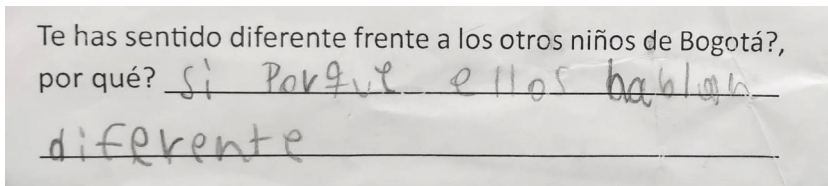 Te has sentido diferente frente a los otros niños de Bogotá?,
por qué? Si Porque ellos hablan
diferente